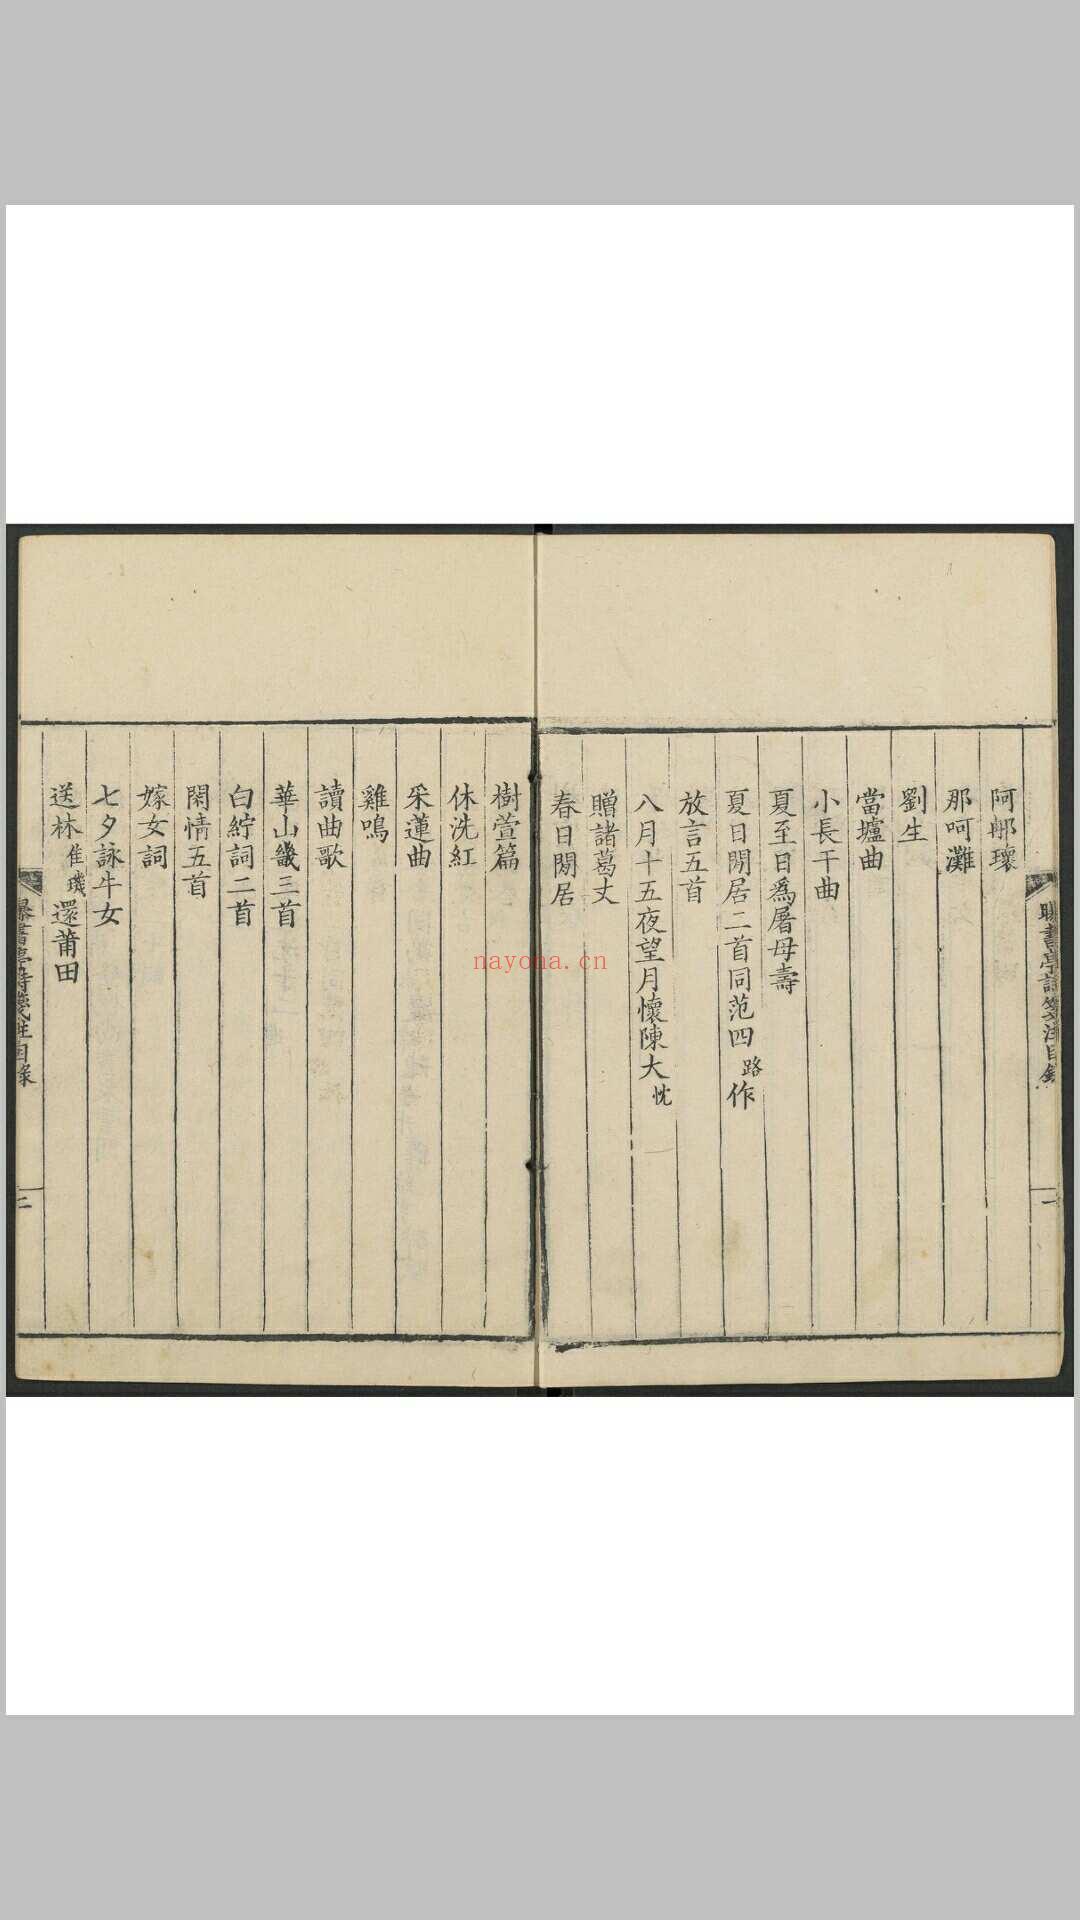 曝書亭詩箋注目錄
一
阿郍瓌
那呵灘
劉生
當壚曲
小長干曲
夏至日為屠母壽
夏日閒居二首同范四路作
放言五首
八月十五夜望月懷陳大忱
贈諸葛丈
春日閒居
樹萱篇
休洗紅
采蓮曲
雞鳴
讀曲歌
華山畿三首
白紵詞二首
閑情五首
嫁女詞
七夕詠牛女
送林佳璣還莆田
曝書亭詩箋注目錄
二
nayona.cn